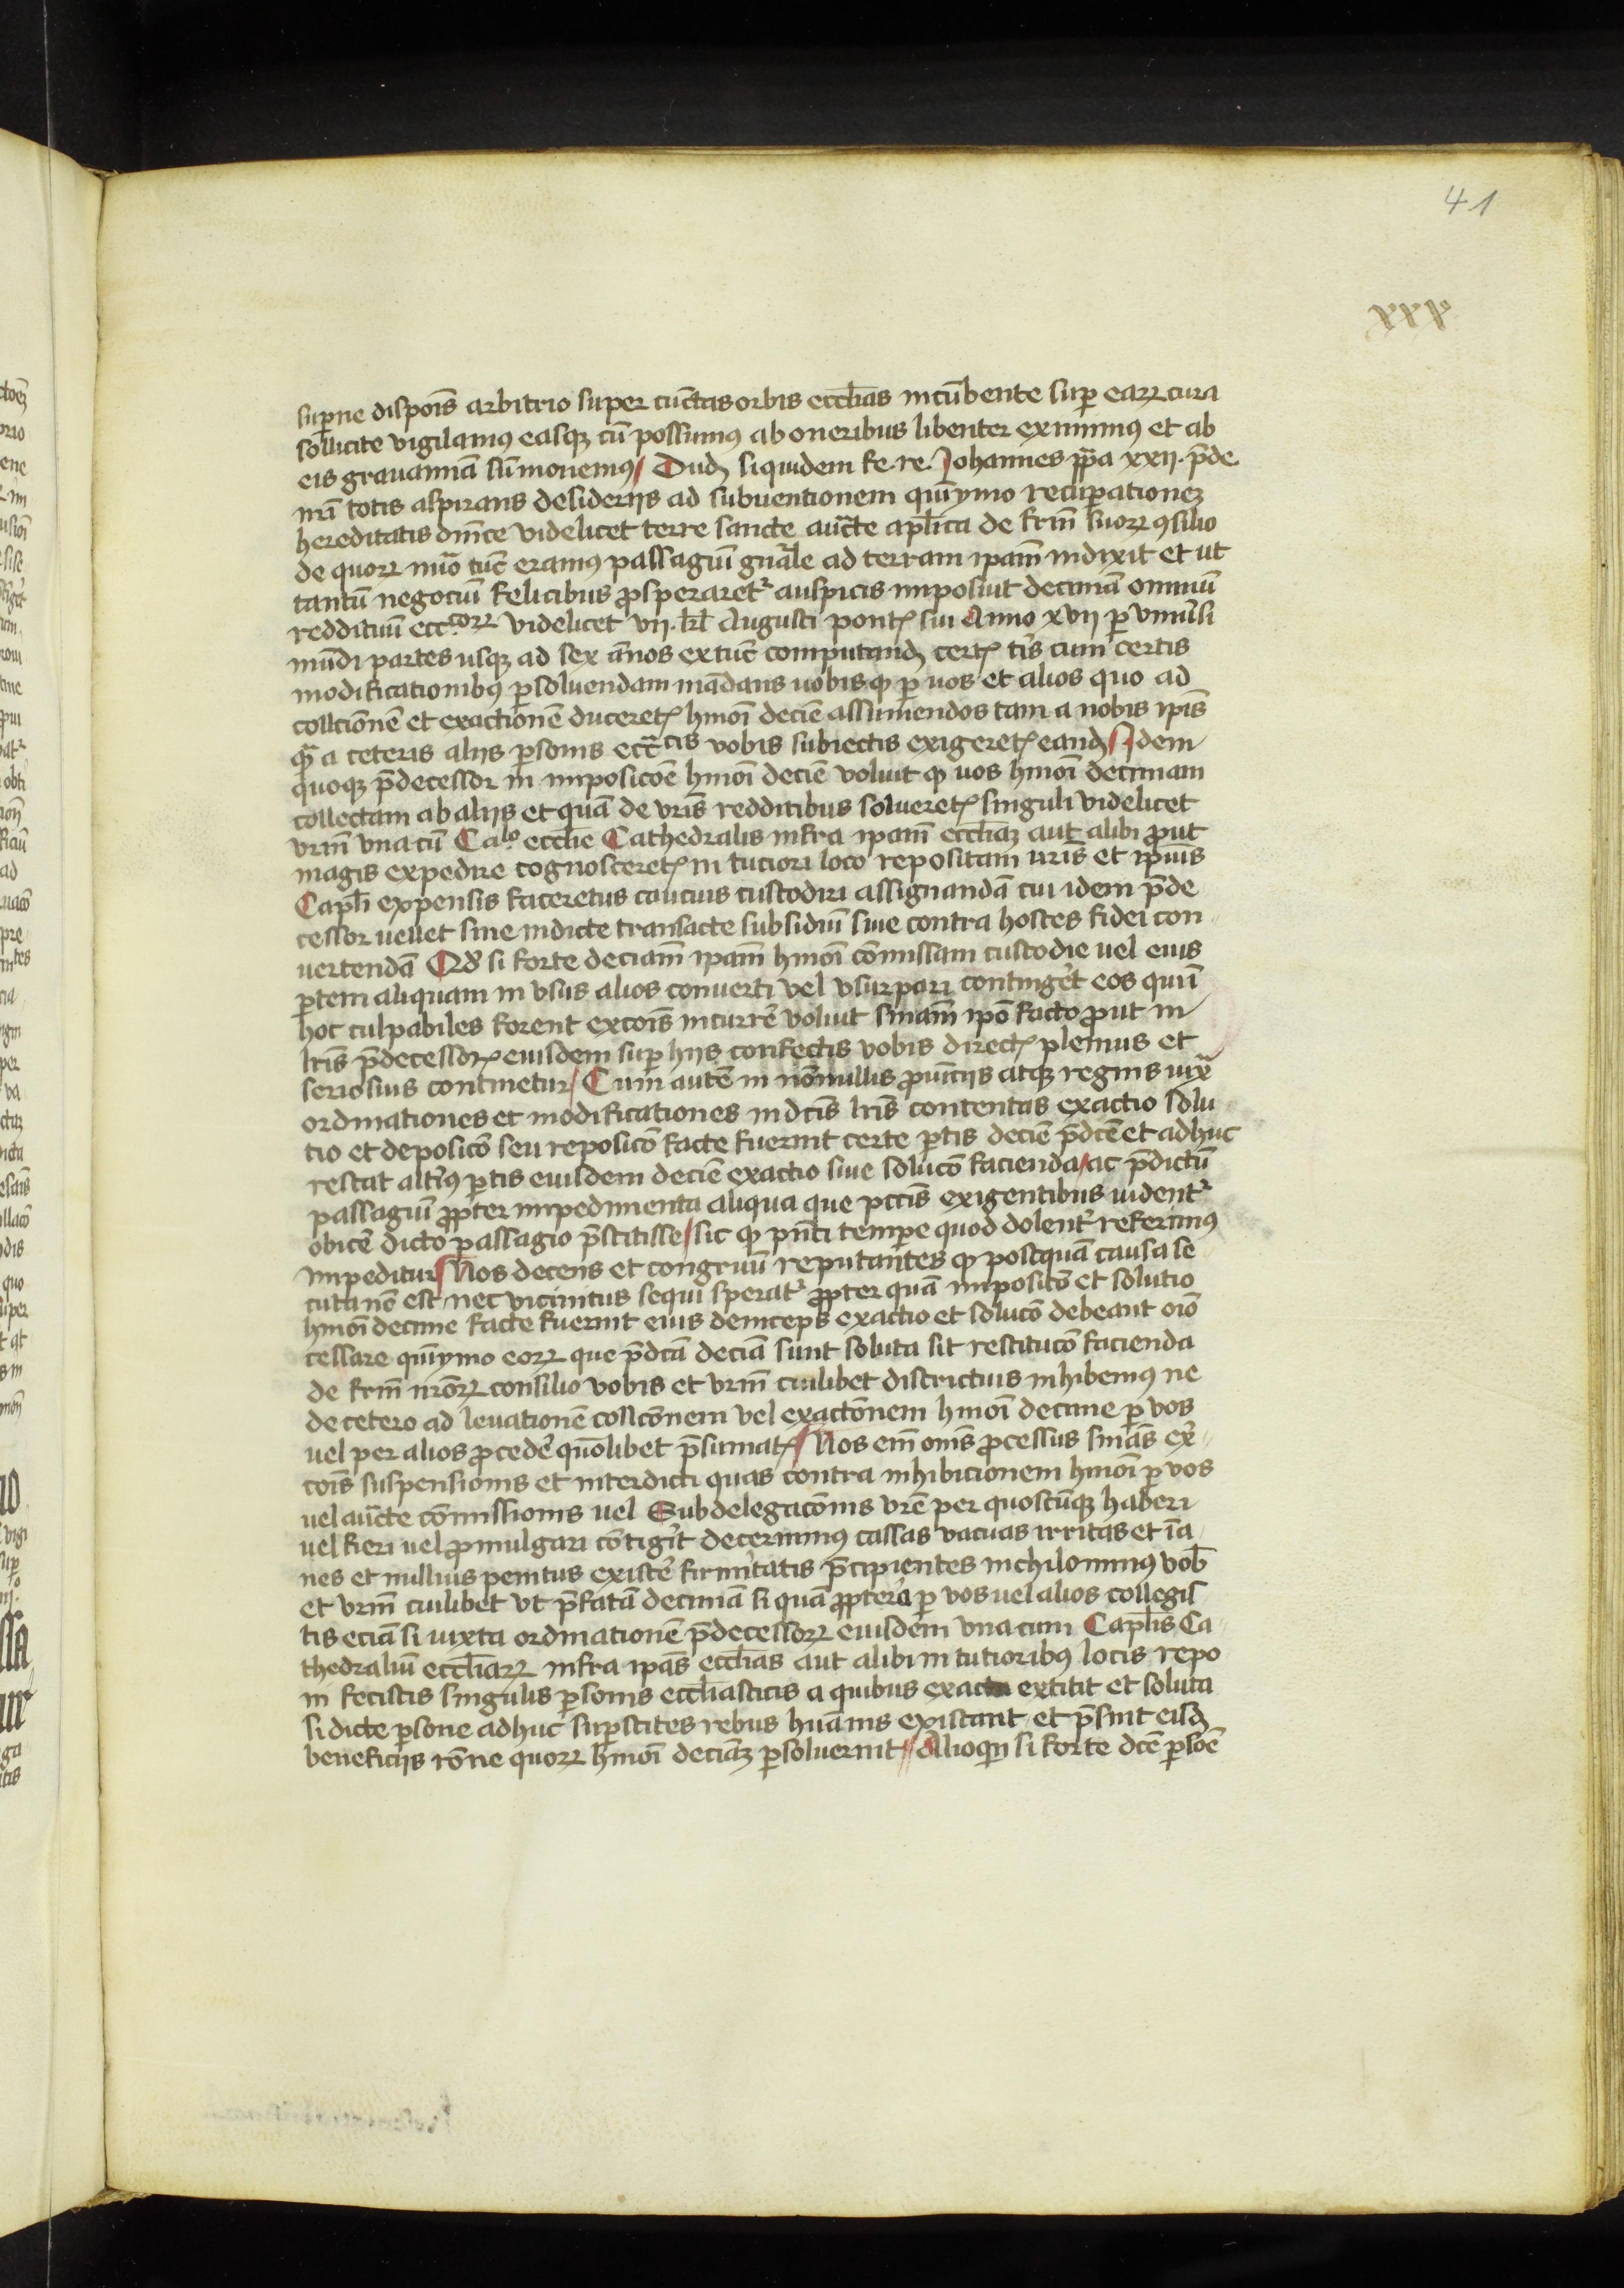 41
xxx
supne dispois arbitrio super cūctas orbis eccl̄ias incūbente sup earꝝ cura
sollicite vigilamꝰ easqꝫ cū possumꝰ ab oneribus libenter eximimꝰ et ab
eis grauamīa sūmouemꝰ Dudꝫ siquidem fe. re. Johannes pp̄a xxii. p̄de
nr̄i totis aspirans desiderijs ad subuentionem quīymo recupationeꝫ
hereditatis dn̄ice videlicet terre sancte auc̄te apl̄ica de fr̄m suorꝝ ꝯsilio
de quorꝝ nūo tūc eramꝰ passagiū gn̄ale ad terram ipam̄ indixit et ut
tantū negociū felicibus ꝓsperaret᷑ auspicijs imposuit decimā omniū
reddituū ecc.corꝝ videlicet vij. kl̄ Augusti pontꝭ sui Anno xvij ꝑ vniuˀsi
mūdi partes usqꝫ ad sex ānos extūc computandꝫ certꝭ tˀīs cum certis
modificationibꝰ ꝑsoluendam mādans uobis ꝙ ꝑ uos et alios quo ad
collcionē et exactionē duceretꝭ hmōi decīe assumendos tam a nobis ipīs
qͣ a ceteris alijs ꝑsonis eccācis vobis subiectis exigeretꝭ eandꝫ Idem
quoqꝫ p̄decessor in imposicōe hmōi decīe voluit ꝙ uos hmōi decimam
collectam ab alijs et quā de vr̄is redditibus solueretꝭ singuli videlicet
vrm̄ vna cū Calo eccl̄ie Cathedralis infra ipam̄ eccl̄iaꝫ aut alibi ꝓut
magis expedire cognosceretꝭ in tuciori loco repositam ur̄is et ipīus
Capl̄i expensis faceretus caucius custodiri assignandā cui idem p̄de
cessor uellet siue in dicte transacte subsidiū siue contra hostes fidei con
uertendā Qđ si forte deciam̄ ipam̄ hmōi cōmissam custodie uel eius
ꝑtem aliquam in vsus alios conuerti vel vsurpari contingēt eos qui ī
hoc culpabiles forent excōis incurrē voluit sniam̄ ipō facto ꝓut in
lr̄is p̄decessorꝭ eiusdem sup hijs confectis vobis directꝭ plenius et
seriosius continetur Cum autē in nōnullis ꝓuīcijs atqꝫ regnis iuxͣ
ordinationes et modificationes in dcīs lr̄is contentas exactio solu
tio et deposicō seu reposicō facte fuerint certe ꝑtis decīe p̄dcē et adhuc
restat altˀiꝰ ꝑtis eiusdem decīe exactio siue solucō facienda ac p̄dictū
passagiū ꝓpter impedimenta aliqua que pccīs exigentibus uident᷑
obicē dicto passagio p̄stitisse sic ꝙ pn̄ti tempe quod dolent᷑ referimꝰ
impeditur Nos decens et congruū reputantes ꝙ postquā causa se
cuta nō est nec vicinius sequi sperat᷑ ꝓpter quā imposicō et solutio
hmōi decime facte fuerint eius deinceps exactio et solucō debeant oīo
cessare quīymo eorꝝ que p̄dcā deciā sunt soluta sit restitucō facienda
de fr̄m nr̄orꝝ consilio vobis et vrm̄ cuilibet districtius inhibemꝰ ne
de cetero ad leuationē collcōnem vel exactōnem hmōi decime ꝑ vos
uel per alios ꝓcedē quolibet p̄sumatꝭ Nos em̄ oīns ꝓcessus sniās ex
cōis suspensionis et interdicti quas contra inhibicionem hmōi ꝑ vos
uel auc̄te cōmissionis uel Subdelegacōnis vr̄e per quoscūqꝫ haberi
uel fieri uel ꝓmulgari cōtigˀit decernimꝰ cassas vacuas irritas et īa
nes et nullius penitus existē firmitatis p̄cipientes inchilominꝰ vob̄
et vrm̄ cuilibet vt p̄fatā decimā si quā ꝓpterea ꝑ vos uel alios collegis
tis eciā si iuxta ordinationē p̄decessorꝝ eiusdem vna cum Capl̄is Ca
thedraliū eccl̄iarꝝ infra ipās eccl̄ias aut alibi in tutioribꝰ locis repo
ni fecistis singulis ꝑsonis eccl̄iasticis a quibus exacta extitit et soluta
si dicte ꝑsone adhuc supstites rebus huānis existant et p̄sint eisdꝫ
beneficijs rōne quorꝝ hmōi deciāꝫ ꝑsoluerint Alioqn̄ si forte dcē ꝑsōe